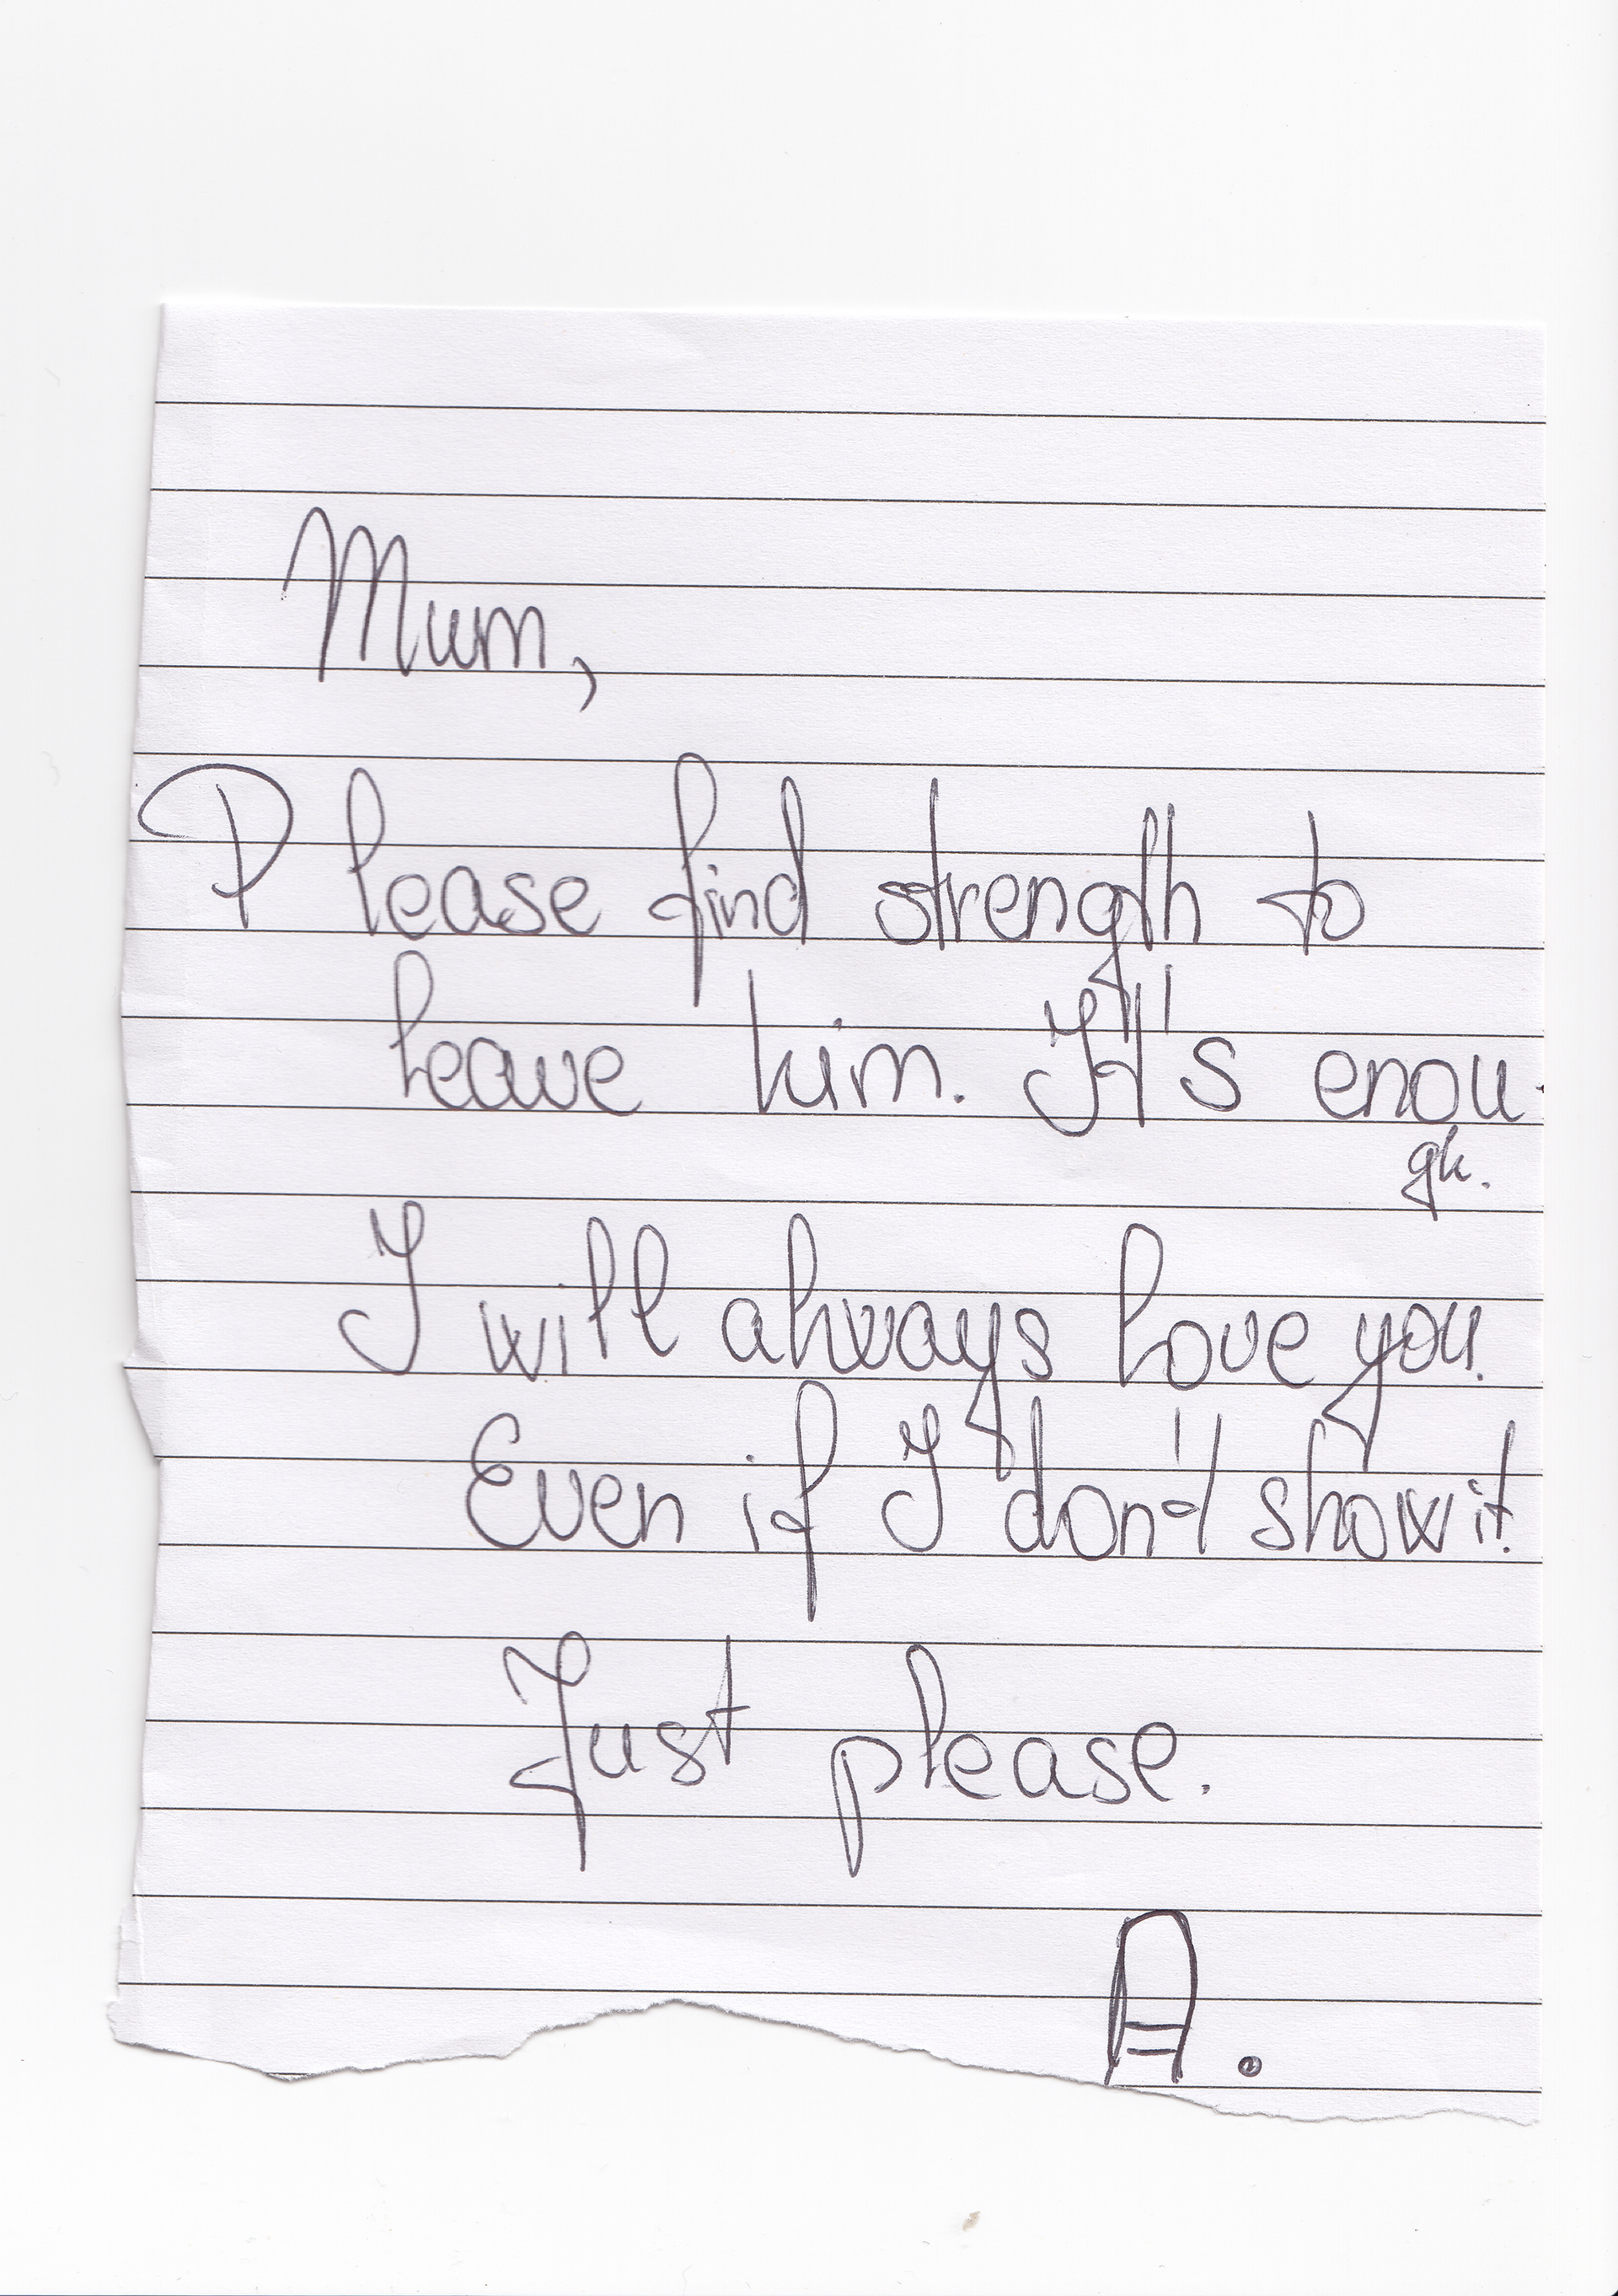 Mum,
Please find strength to
leave him. It's enou-
gh.
I will always love you.
Even if I don't show it.
Just please.
A.